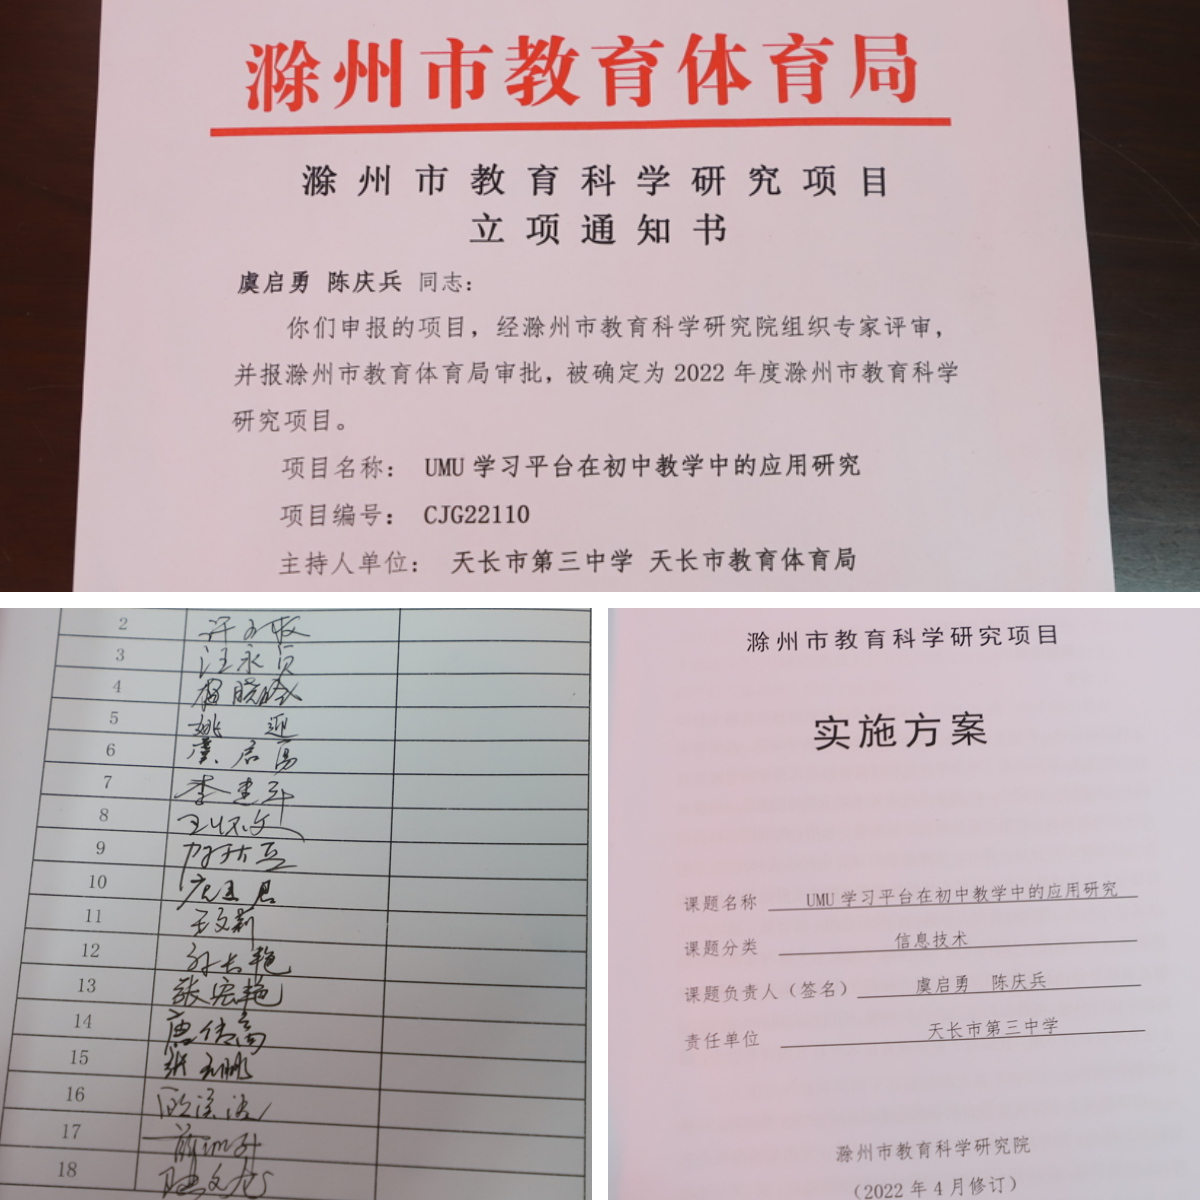 滁州市教育体育局
滁州市教育科学研究项目
立项通知书
虞启勇 陈庆兵 同志：
你们申报的项目，经滁州市教育科学研究院组织专家评审，
并报滁州市教育体育局审批，被确定为 2022 年度滁州市教育科学
研究项目。
项目名称： UMU 学习平台在初中教学中的应用研究
项目编号： CJG22110
主持人单位： 天长市第三中学 天长市教育体育局
2
3 汪永
4
5 姚迎
6 虞启勇
7 李
8
9
10
11 王文莉
12 艳
13 张宏艳
14
15 张
16
17
18
滁州市教育科学研究项目
实施方案
课题名称 UMU 学习平台在初中教学中的应用研究
课题分类 信息技术
课题负责人（签名） 虞启勇 陈庆兵
责任单位 天长市第三中学
滁州市教育科学研究院
（2022 年 4 月修订）